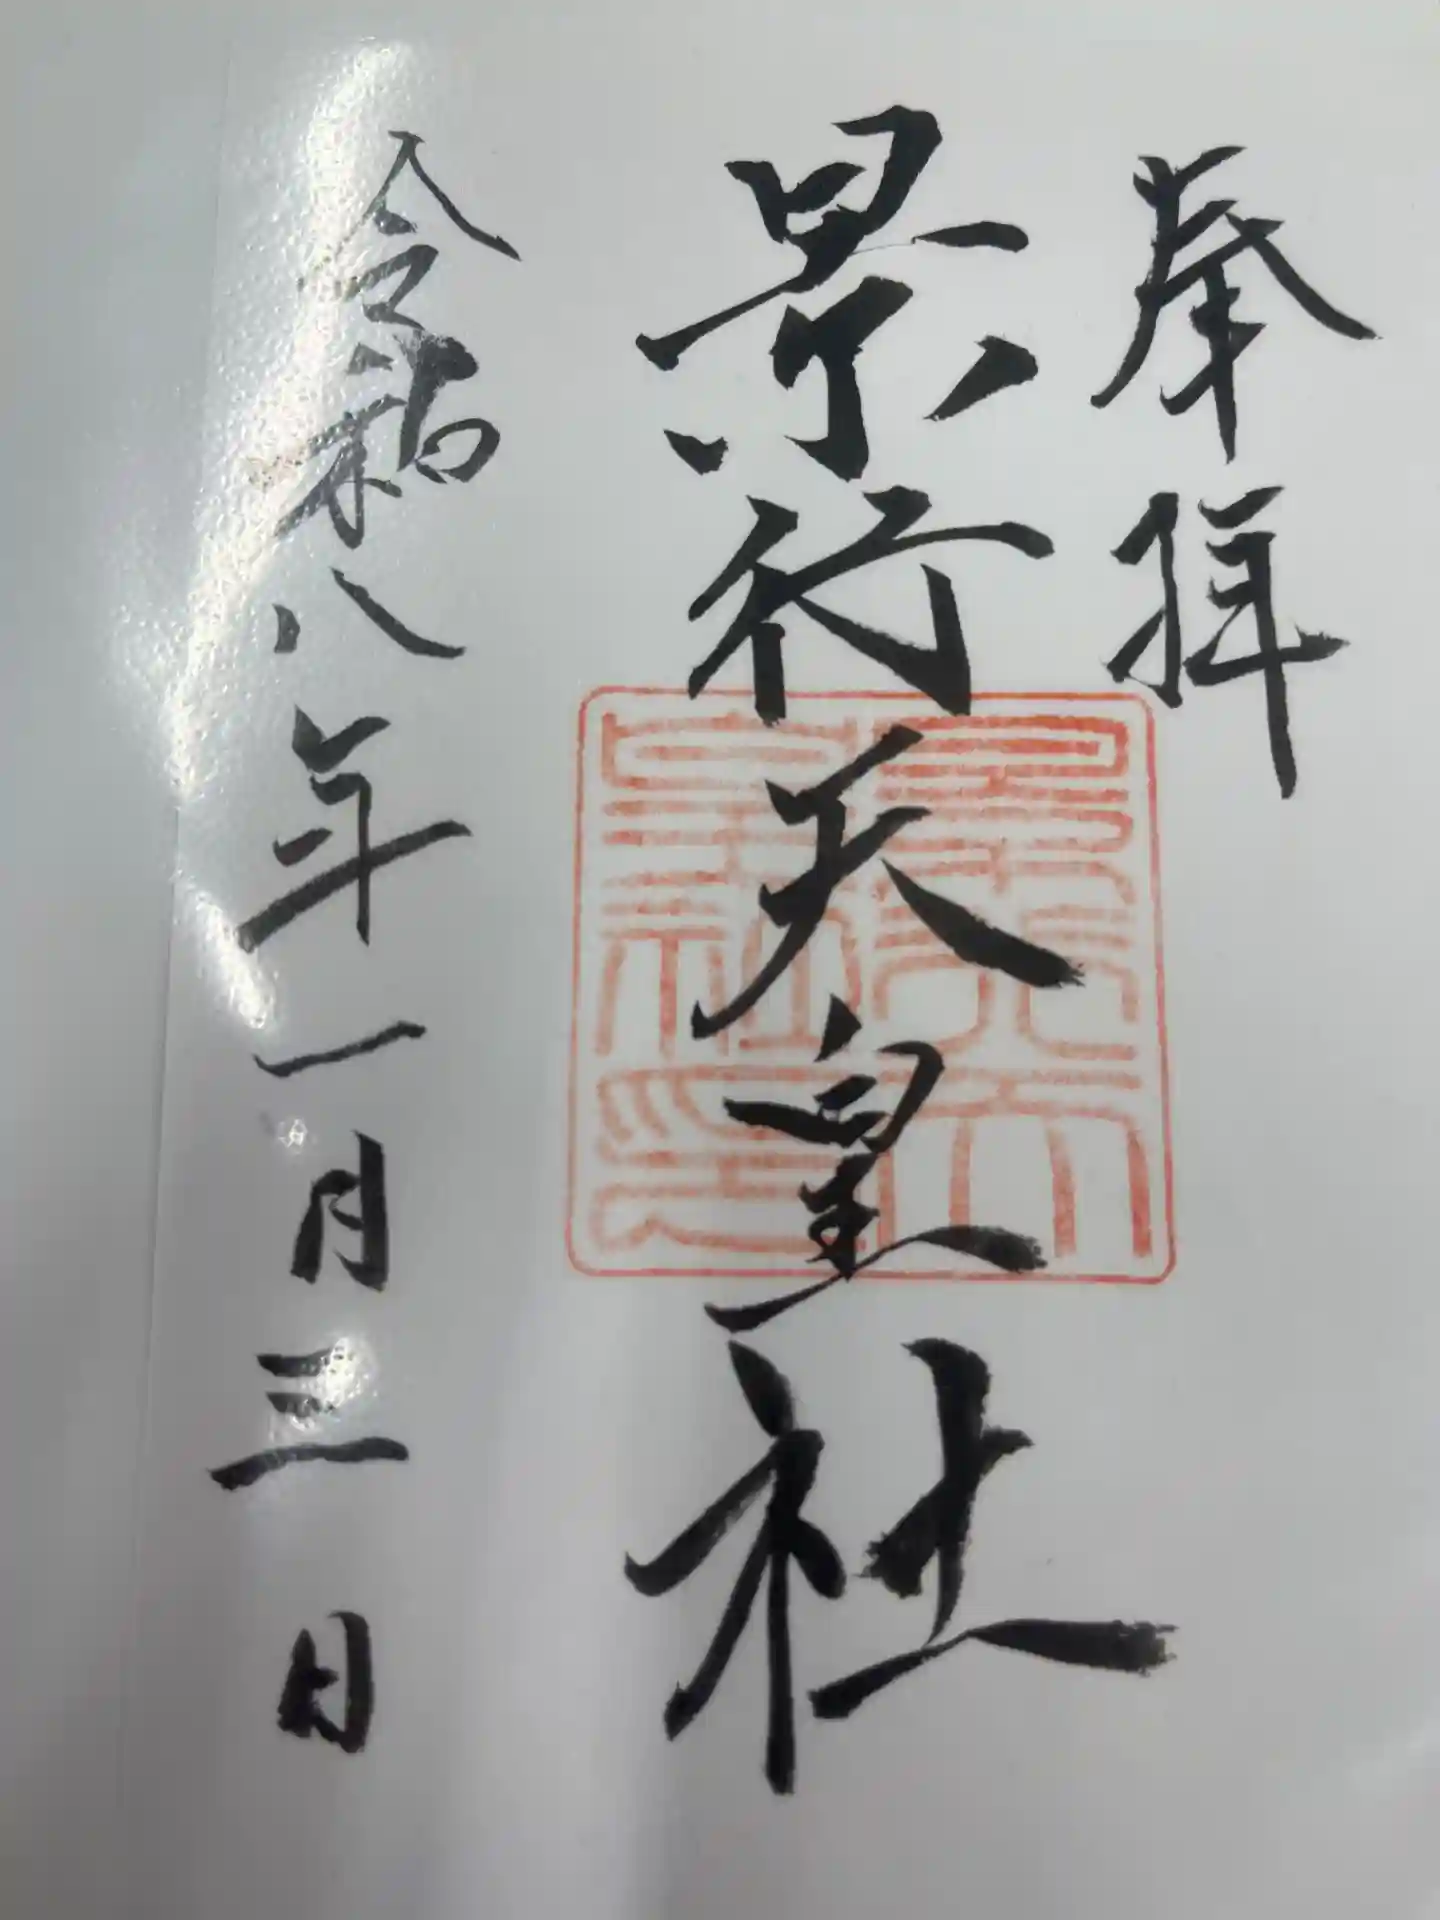 奉拝
景行天皇社
景行天皇社印
令和八年一月三日